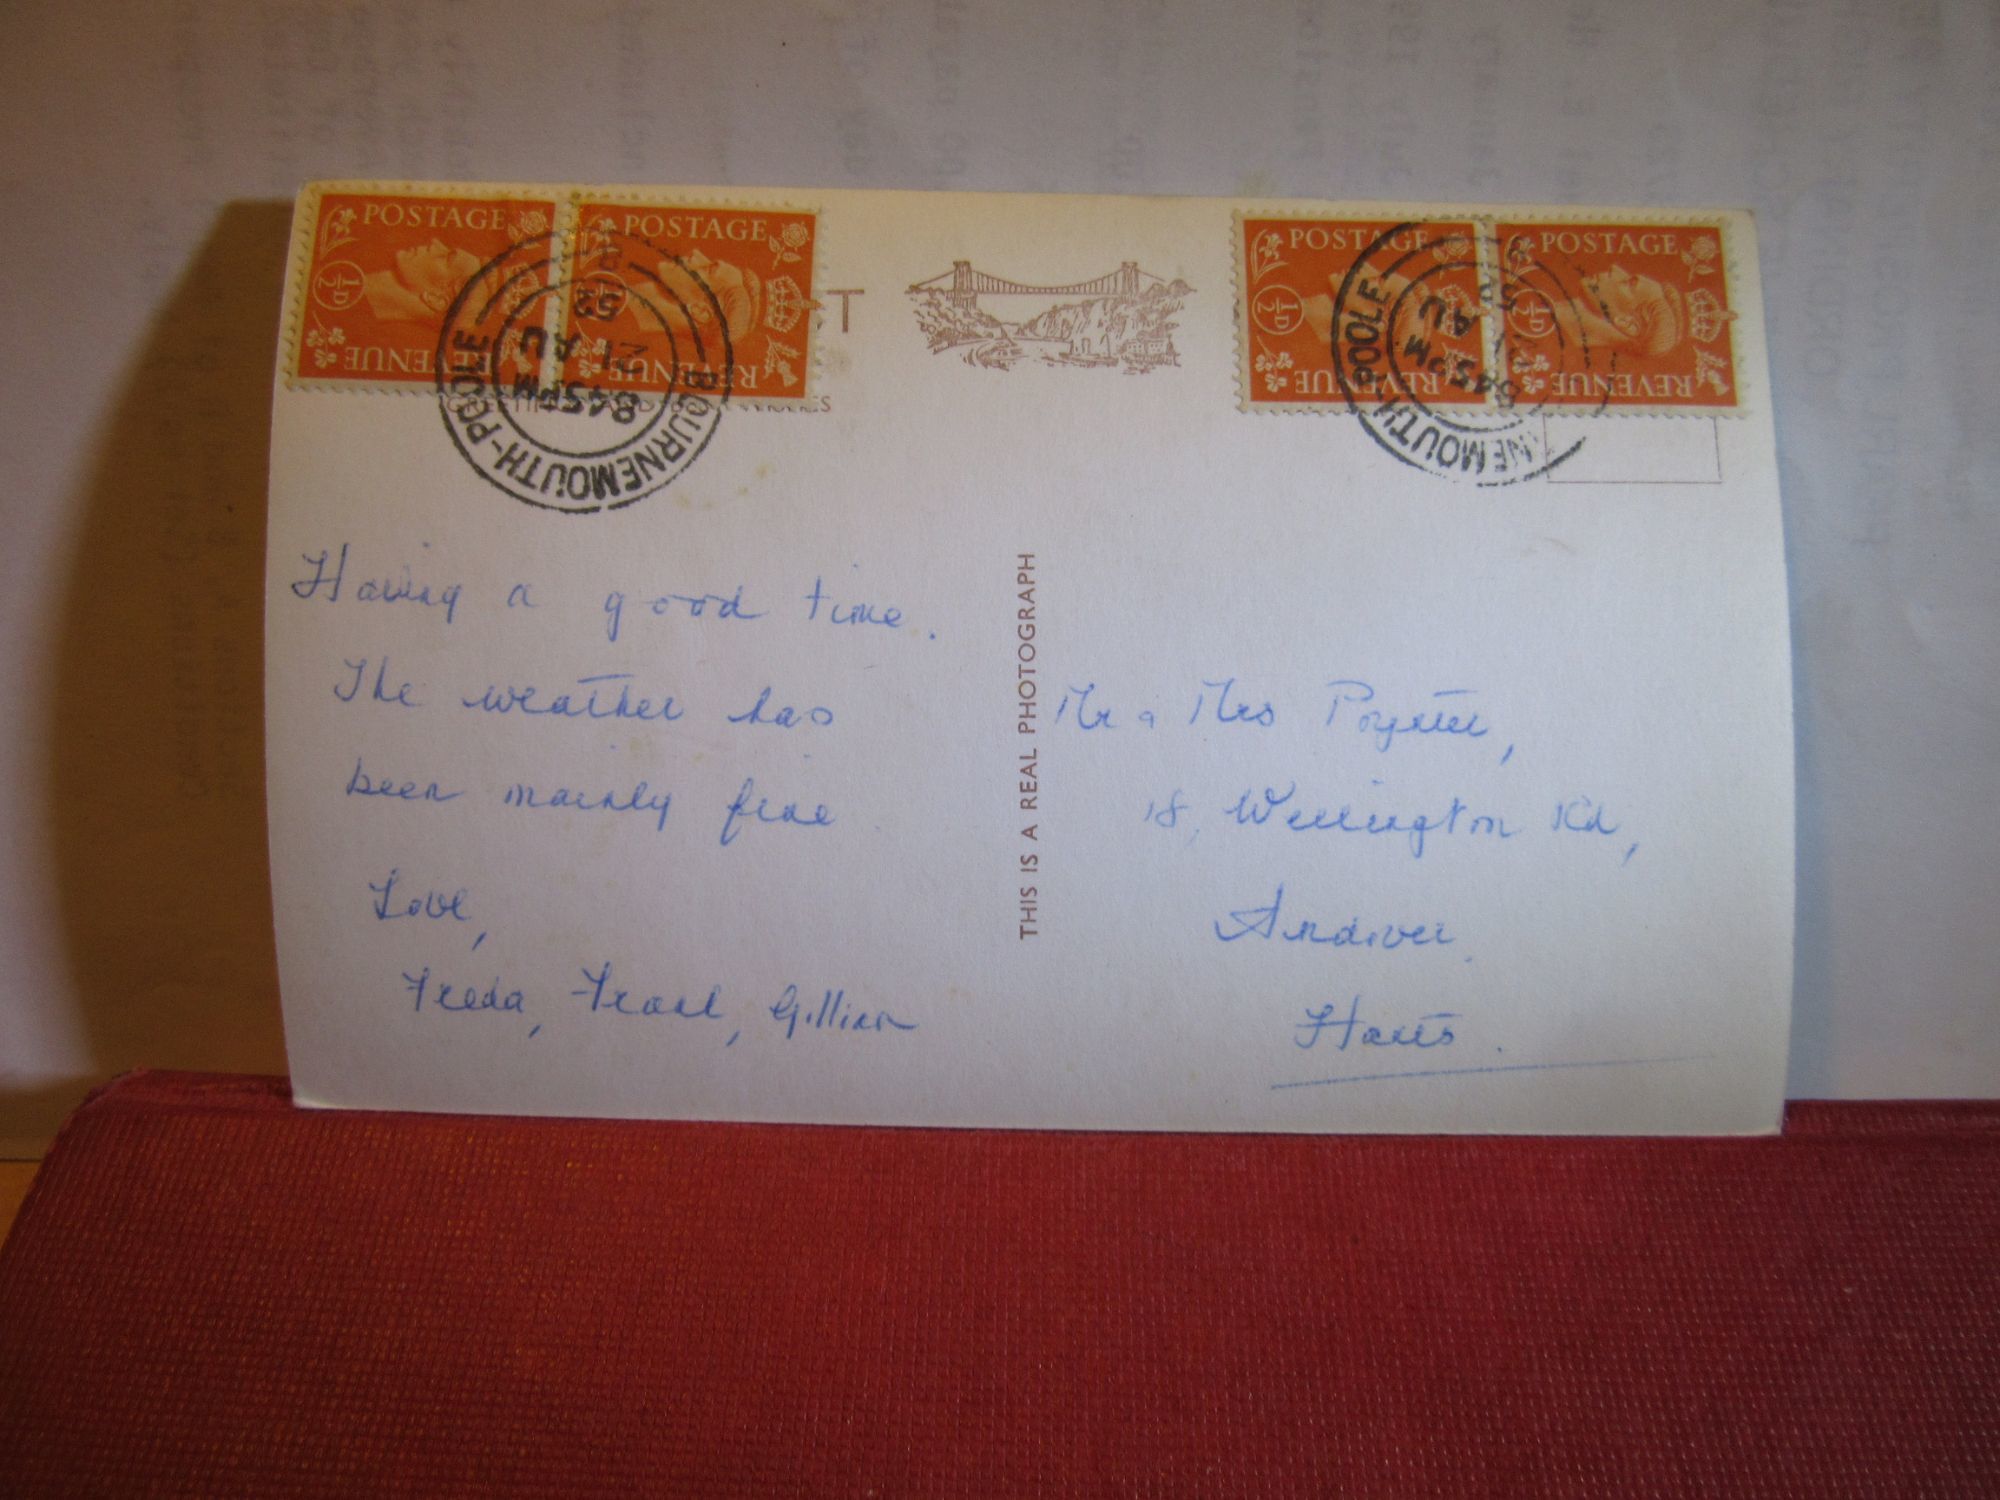 POSTAGE POSTAGE POSTAGE POSTAGE
½D ½D ½D ½D
REVENUE REVENUE REVENUE REVENUE
BOURNEMOUTH-POOLE
8 45PM
21 AU
53
NEMOUTH-POOLE
8 45PM
AU
T
Having a good time.
The weather has
been mainly fine.
Love,
Freda, Frank, Gillian
THIS IS A REAL PHOTOGRAPH
Mr & Mrs Poynter,
18, Wellington Rd,
Andover.
Hants.